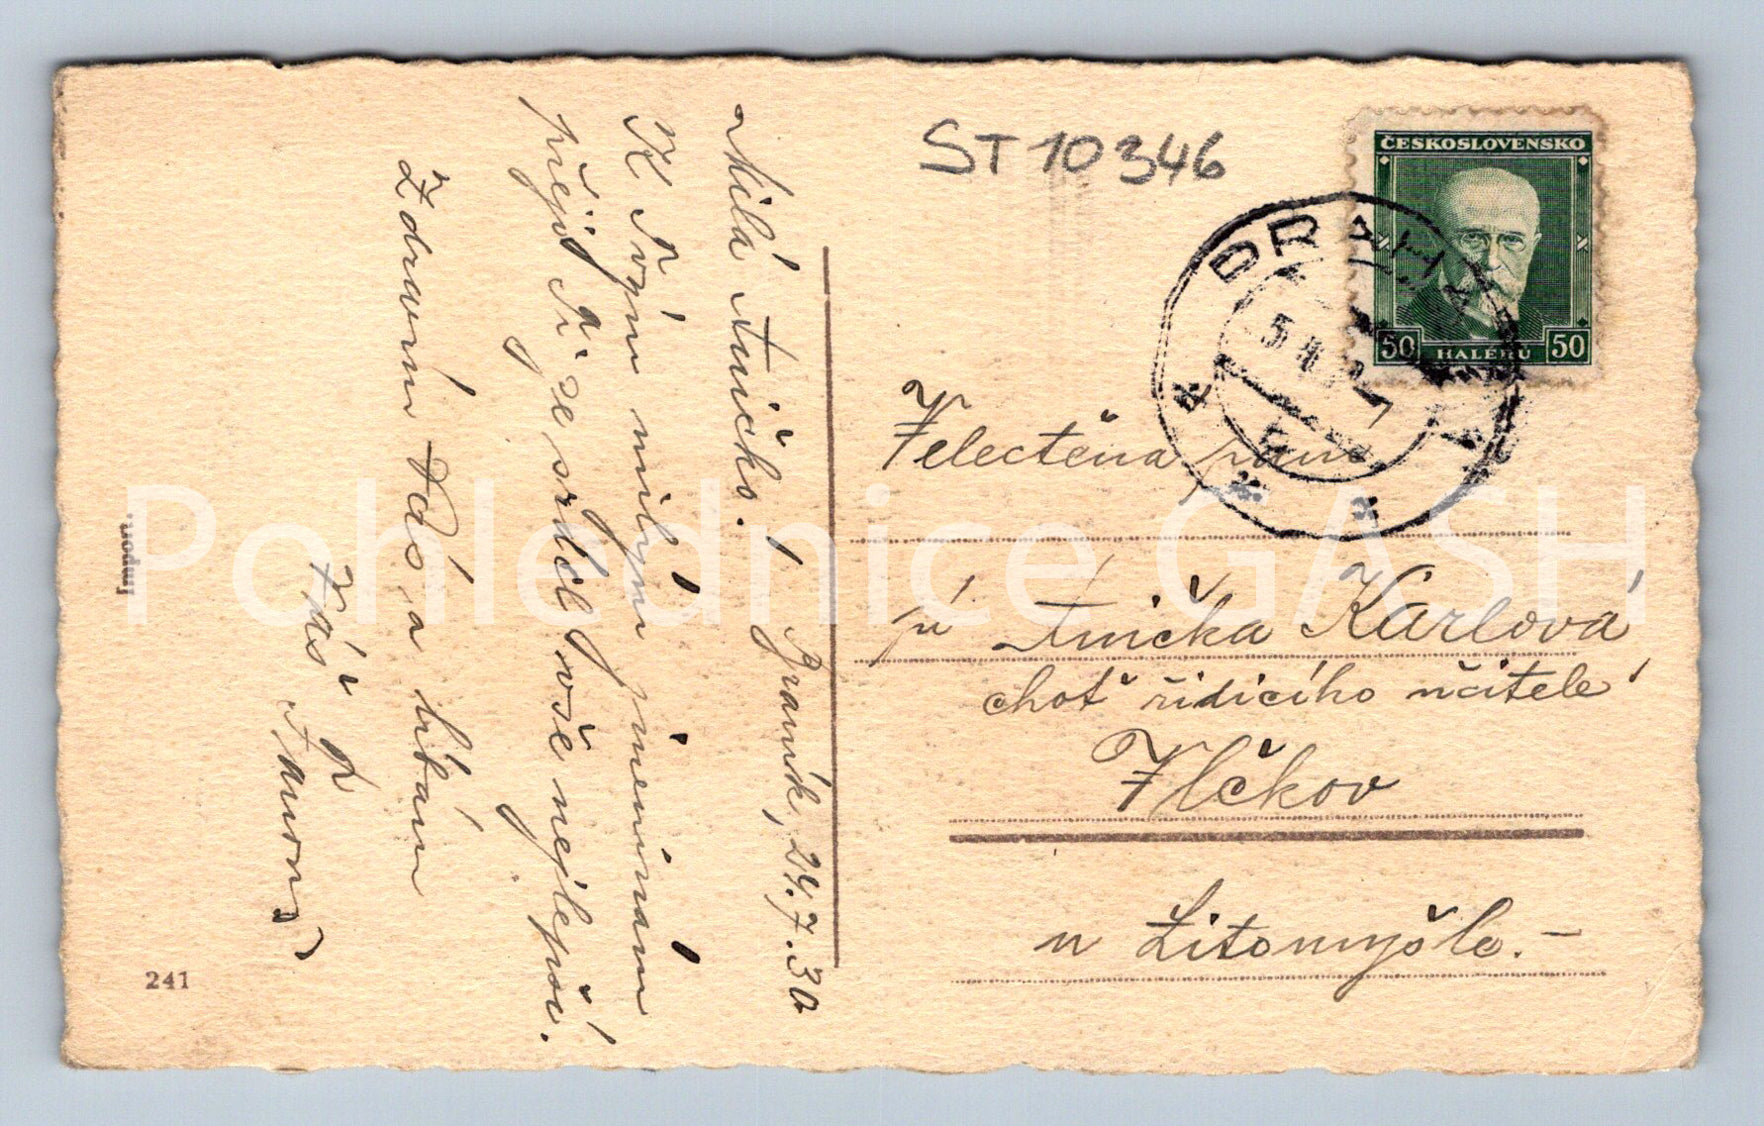 Milá Aničko!
Braník, 24.7.30
K Tvým milým jmeninám
přeji Ti ze srdce vše nejlepší.
Zdraví Vás a líbám
Váš
ST 10346
ČESKOSLOVENSKO
50 HALÉŘŮ 50
PRAHA
Velectěná paní
pí Anička Karlová
choť řídicího učitele
Vlčkov
u Litomyšle.-
Import.
241
Pohlednice GASH